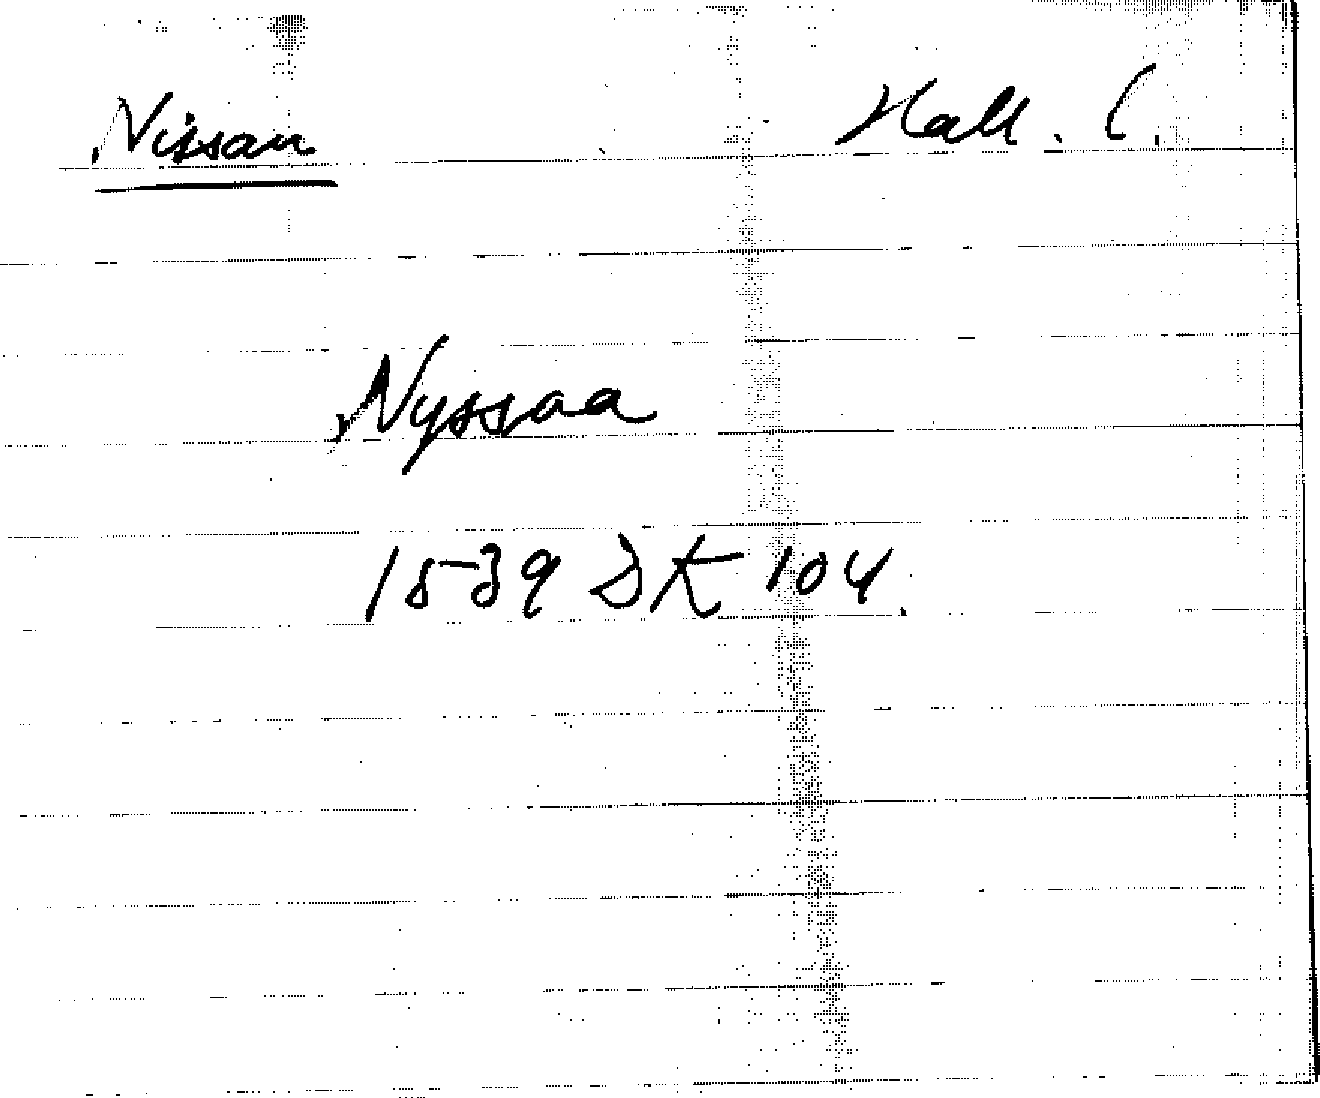 Nissan Hall. C.
Nyssaa
1539 DK 104.